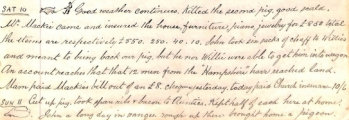 SAT 10 Good weather continues. Killed the second pig, good scald.
Mr. Mackie came and insured the house, furniture, piano, jewelry for £850 total
the items are respectively £550. 250. 40. 10. John took six sacks of chaff to Willies
and meant to bring back our pig, but he nor Willie were able to get him into wagon.
An account reaches that 12 men from the "Hampshire" have reached land.
Mam paid Mackie's bill out of an £8. cheque yesterday, today paid Church insurance 10/6
SUN 11 Cut up pig, took spare rib & bacon to Aunties. Kept half of each here at home.
John a long day in rough up then brought home a pigeon.